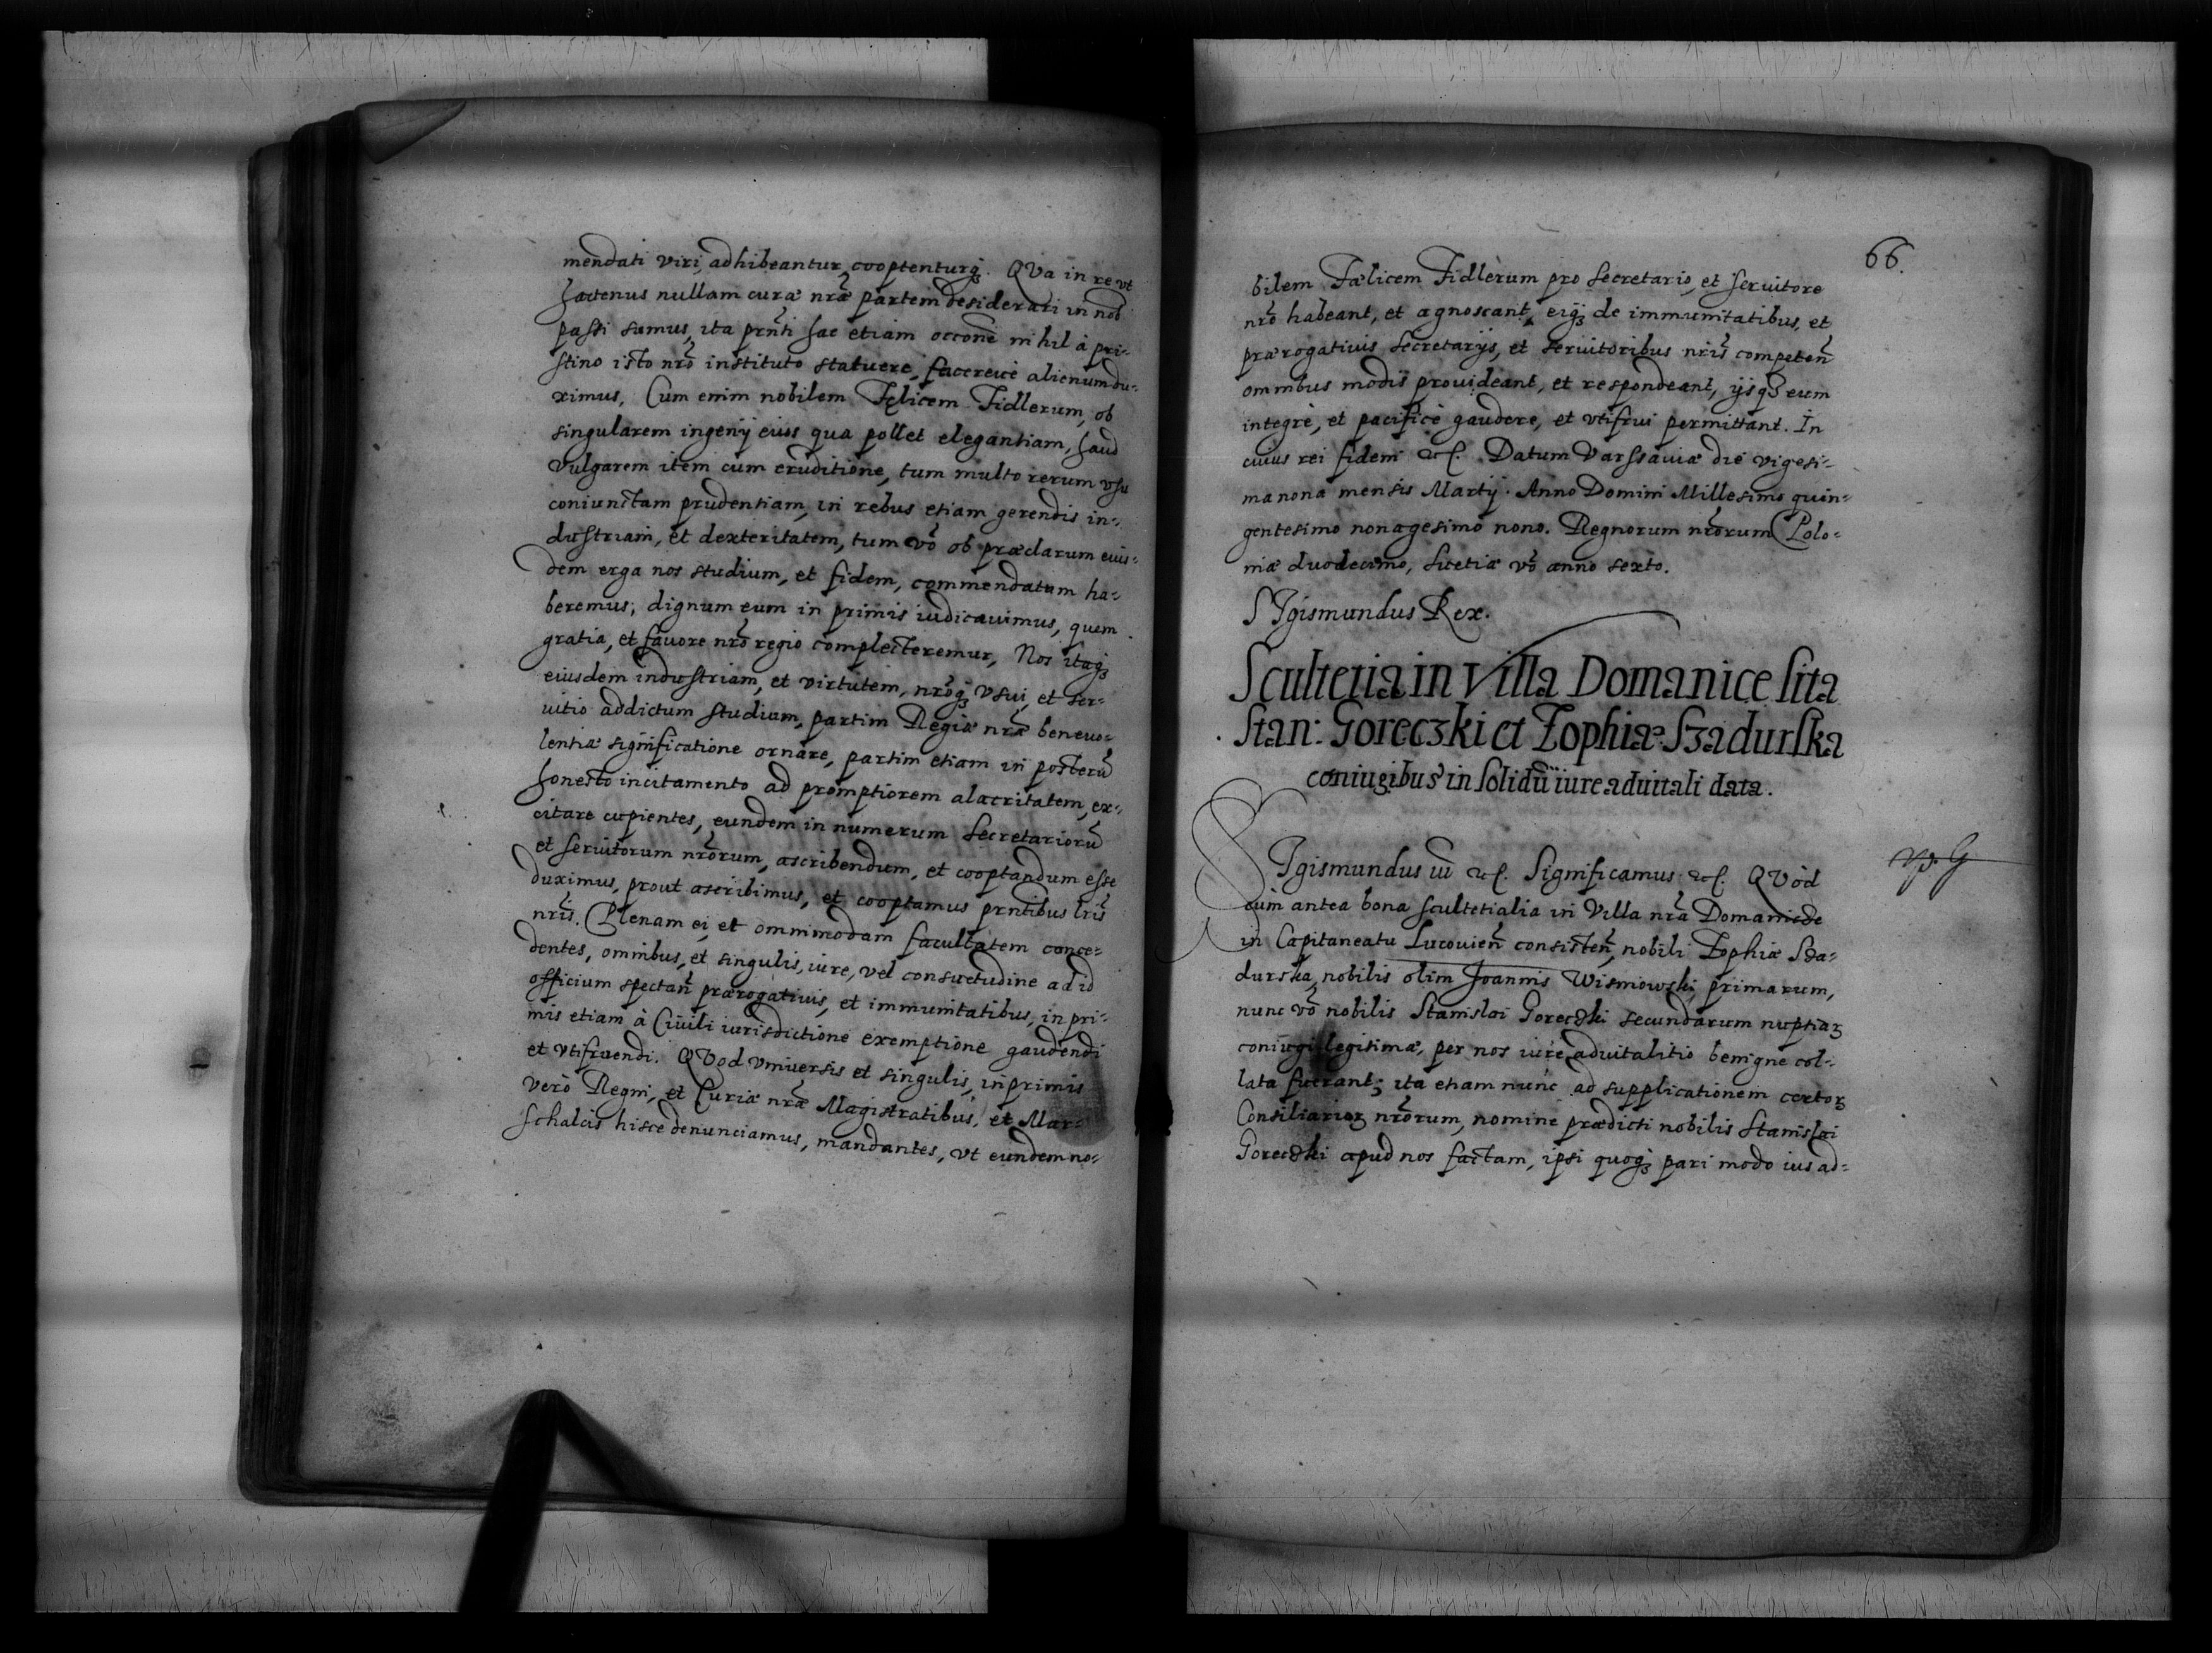 mendati viri, adhibeantur, cooptenturq₃. QVa in re vt
hactenus nullam curæ nr̃æ partem desiderari in nob̃
passi sumus, ita prñti hac etiam occon̄e nihil à pri-
stino isto nr̃o instituto statuere, facereuè alienum du-
ximus. Cum enim nobilem Fęlicem Fidlerum, ob
singularem ingenij eius qua pollet elegantiam, haud
vulgarem item cum eruditione, tum multo rerum vsu
coniunctam prudentiam, in rebus etiam gerendis in-
dustriam, et dexteritatem, tum vo᷉ ob præclarum eius-
dem erga nos studium, et fidem, commendatum ha-
beremus; dignum eum in primis iudicauimus, quem
gratia, et fauore nr̃o regio complecteremur, Nos itaq₃
eiusdem industriam, et virtutem, nr̃oq₃ vsui, et ser-
uitio addictum studium, partim Regiæ nr̃æ beneuo-
lentiæ significatione ornare, partim etiam in posterũ
honesto incitamento ad promptiorem alacritatem, ex-
citare cupientes, eundem in numerum Secretariorũ
et seruitorum nr̃orum, ascribendum, et cooptandum esse
duximus, prout ascribimus, et cooptamus prñtibus lr̃is
nr̃is. Plenam ei, et omnimodam facultatem conce-
dentes, omnibus, et singulis, iure, vel consuetudine ad id
officium spectañ prærogatiuis, et immunitatibus, in pri-
mis etiam à Ciuili iurisdictione exemptione gaudendi
et vtifruendi. QVod vniuersis et singulis, in primis
verò Regni, et Curiæ nr̃æ Magistratibus, et Mar-
schalcis hisce denunciamus, mandantes, vt eundem no-
66.
bilem Fælicem Fidlerum pro Secretario, et seruitore
nr̃o habeant, et agnoscant, eiq₃ de immunitatibus, et
prærogatiuis Secretarijs, et seruitoribus nr̃is competeñ
omnibus modis prouideant, et respondeant, ijsq₃ eum
integrè, et pacificè gaudere, et vtifrui permittant. In
cuius rei fidem etc. Datum Varssauiæ die vigesi-
ma nona mensis Martij. Anno Domini Millesimo quin-
gentesimo nonagesimo nono. Regnorum nr̃orum Polo-
niæ duodecimo, Suetiæ vo᷉ anno sexto.
SIgismundus Rex.
Scultetia in Villa Domanice sita
Stan: Goreczki et Zophiæ Szadurska
coniugibus in solidũ iure aduitali data.
SIgismundus iii etc. Significamus etc. QVòd
cùm antea bona scultetialia in Villa nr̃a Domanicze
in Capitaneatu Lucouieñ consisteñ, nobili Zophiæ Sza-
durska, nobilis olim Joannis Wisniowski primarum,
nunc vo᷉ nobilis Stanislai Goreczki secundarum nuptiaꝝ
coniugi legitimæ, per nos iure aduitalitio benigne col-
lata fuerant; ita etiam nunc ad supplicationem certoꝝ
Consiliarioꝝ nr̃orum, nomine prædicti nobilis Stanislai
Goreczki apud nos factam, ipsi quoq₃ pari modo ius ad-